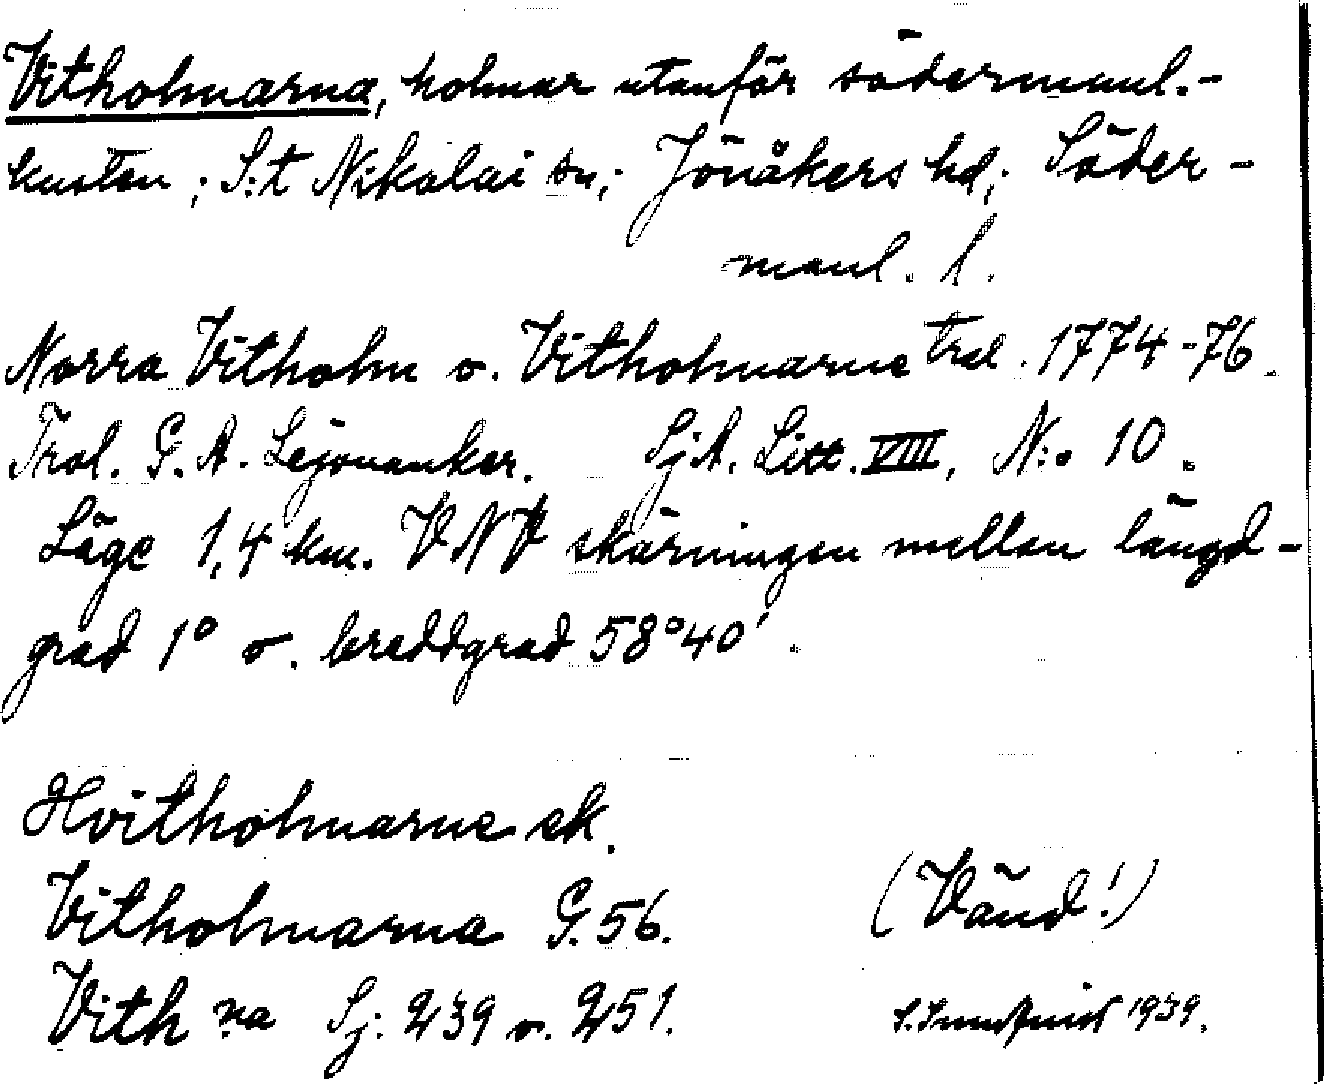 Vitholmarna, holmar utanför södermanl.-
kusten; S:t Nikolai sn; Jönåkers hd; Söder-
manl. l.
Norra Vitholm o. Vitholmarne Trol. 1774-76.
Trol. G. A. Lejonanker. SjA. Litt. VIII, N:o 10.
Läge 1,4 km. VNV skärningen mellan längd-
grad 1° o. breddgrad 58°40'.
Hvitholmarne ek.
Vitholmarna G. 56. (Vänd!)
Vith na Sj: 239 o. 251. 1939.